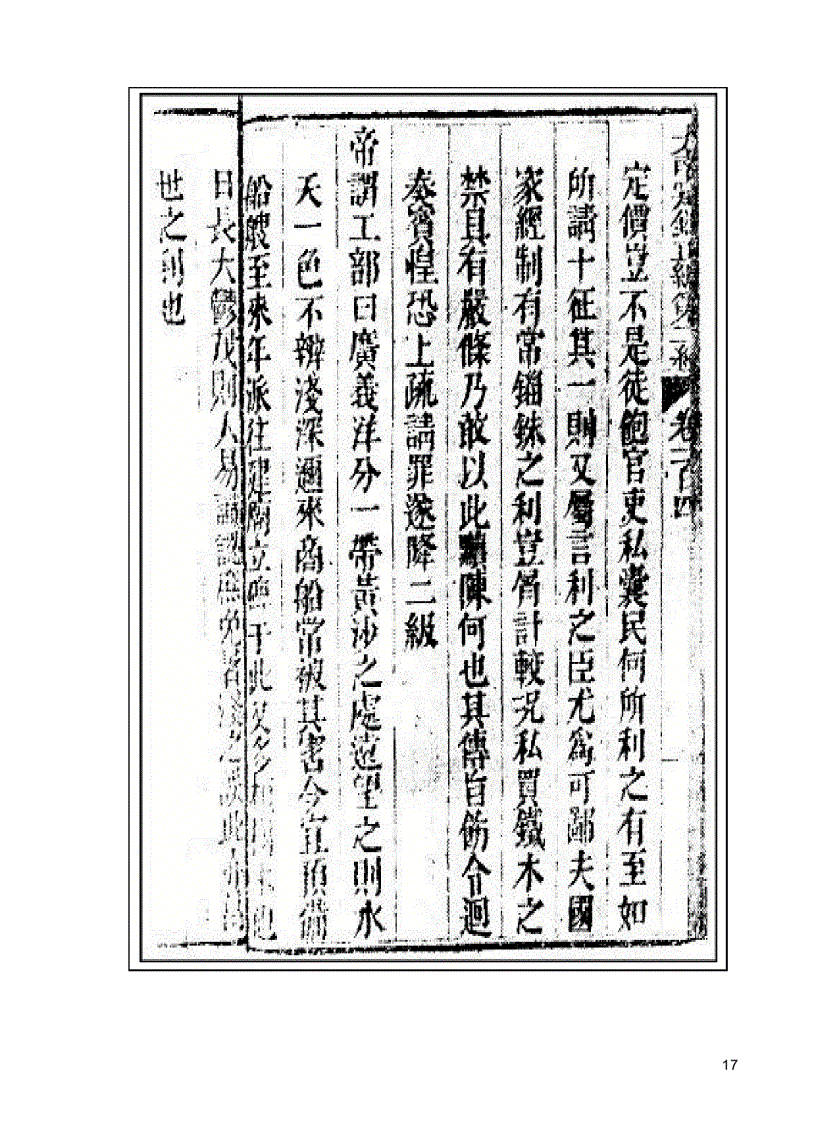 大南寔錄正編第二紀 卷一百四
定價豈不是徒飽官吏私囊民何所利之有至如
所請十征其一則又屬言利之臣尤爲可鄙夫國
家經制有常錙銖之利豈屑計較况私買鐵木之
禁具有嚴條乃敢以此瀆陳何也其傳旨飭令迴
奏賓惶恐上疏請罪遂降二級
帝謂工部曰廣義洋分一帶黃沙之處遠望之則水
天一色不辨淺深邇來商船常被其害今宜預備
船艘至來年派往建廟立碑于此又多植樹木他
日長大鬱茂則人易識認庶免著淺之誤此亦萬
世之利也
17